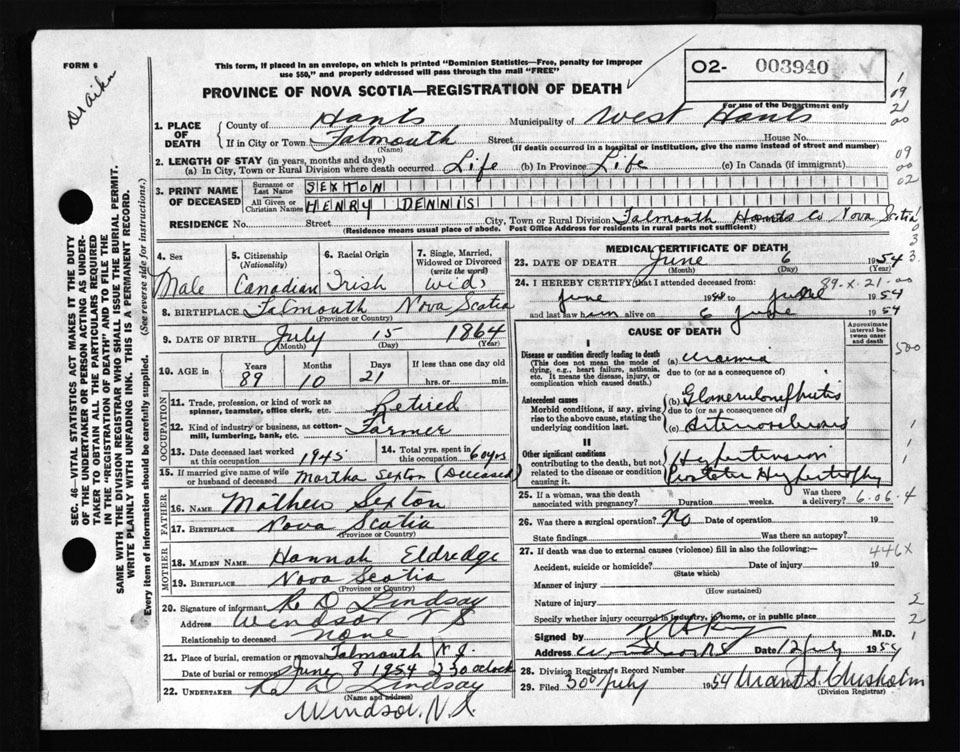 FORM 6
Draiken
This form, if placed in an envelope, on which is printed "Dominion Statistics—Free, penalty for improper
use $50," and properly addressed will pass through the mail "FREE"
02- 003940
For use of the Department only
PROVINCE OF NOVA SCOTIA—REGISTRATION OF DEATH
1. PLACE OF DEATH
County of Hants Municipality of West Hants
If in City or Town Falmouth Street House No.
(Name) (If death occurred in a hospital or institution, give the name instead of street and number)
2. LENGTH OF STAY (in years, months and days)
(a) In City, Town or Rural Division where death occurred Life (b) In Province Life (c) In Canada (if immigrant)
3. PRINT NAME OF DECEASED
Surname or Last Name SEXTON
All Given or Christian Names HENRY DENNIS
RESIDENCE No. Street City, Town or Rural Division Falmouth Hants Co Nova Scotia
(Residence means usual place of abode. Post Office Address for residents in rural parts not sufficient)
4. Sex Male
5. Citizenship (Nationality) Canadian
6. Racial Origin Irish
7. Single, Married, Widowed or Divorced (write the word) Wid.
8. BIRTHPLACE Falmouth Nova Scotia
(Province or Country)
9. DATE OF BIRTH July 15 1864
(Month) (Day) (Year)
10. AGE IN Years 89 Months 10 Days 21 If less than one day hrs. or min.
OCCUPATION
11. Trade, profession, or kind of work as spinner, teamster, office clerk, etc. Retired
12. Kind of industry or business, as cotton-mill, lumbering, bank, etc. Farmer
13. Date deceased last worked at this occupation 1945
14. Total yrs. spent in this occupation 60 yrs
15. If married give name of wife or husband of deceased Martha Sexton (Deceased)
FATHER
16. NAME Mathew Sexton
17. BIRTHPLACE Nova Scotia
(Province or Country)
MOTHER
18. MAIDEN NAME Hannah Eldredge
19. BIRTHPLACE Nova Scotia
(Province or Country)
20. Signature of informant R D Lindsay
Address Windsor N S
Relationship to deceased none
21. Place of burial, cremation or removal Falmouth N.S.
Date of burial or removal June 8 1954 2 30 oclock
22. UNDERTAKER R D Lindsay
(Name and address)
Windsor, N.S.
MEDICAL CERTIFICATE OF DEATH
23. DATE OF DEATH June 6 1954
(Month) (Day) (Year)
24. I HEREBY CERTIFY that I attended deceased from: 89-x-21-00
June 1948 to June 1954
and last saw him alive on 6 June 1954
CAUSE OF DEATH
Approximate interval between onset and death
I
Disease or condition directly leading to death
(This does not mean the mode of dying, e.g., heart failure, asthenia, etc. It means the disease, injury, or complication which caused death.)
(a) Uraemia
due to (or as a consequence of)
Antecedent causes
Morbid conditions, if any, giving rise to the above cause, stating the underlying condition last.
(b) Glomerulonephritis
due to (or as a consequence of)
(c) Arteriosclerosis
II
Other significant conditions
contributing to the death, but not related to the disease or condition causing it.
Hypertension
Prostate Hypertrophy
25. If a woman, was the death associated with pregnancy? Duration weeks. Was there a delivery? 6.06.4
26. Was there a surgical operation? No Date of operation 19
State findings Was there an autopsy?
27. If death was due to external causes (violence) fill in also the following:— 446X
Accident, suicide or homicide? Date of injury 19
(State which)
Manner of injury
(How sustained)
Nature of injury
Specify whether injury occurred in industry, in home, or in public place
Signed by M.D.
Address Windsor NS Date 12 July 1954
28. Division Registrar's Record Number
29. Filed 30 July 1954 S. Chisholm
(Division Registrar)
SEC. 46—VITAL STATISTICS ACT MAKES IT THE DUTY
OF THE UNDERTAKER OR PERSON ACTING AS UNDER-
TAKER TO OBTAIN ALL THE PARTICULARS REQUIRED
IN THE "REGISTRATION OF DEATH" AND TO FILE THE
SAME WITH THE DIVISION REGISTRAR WHO SHALL ISSUE THE BURIAL PERMIT.
WRITE PLAINLY WITH UNFADING INK. THIS IS A PERMANENT RECORD.
Every item of information should be carefully supplied. (See reverse side for instructions.)
1
09
21
00
09
00
02
0
3
3
500
1
1
1
2
2
1